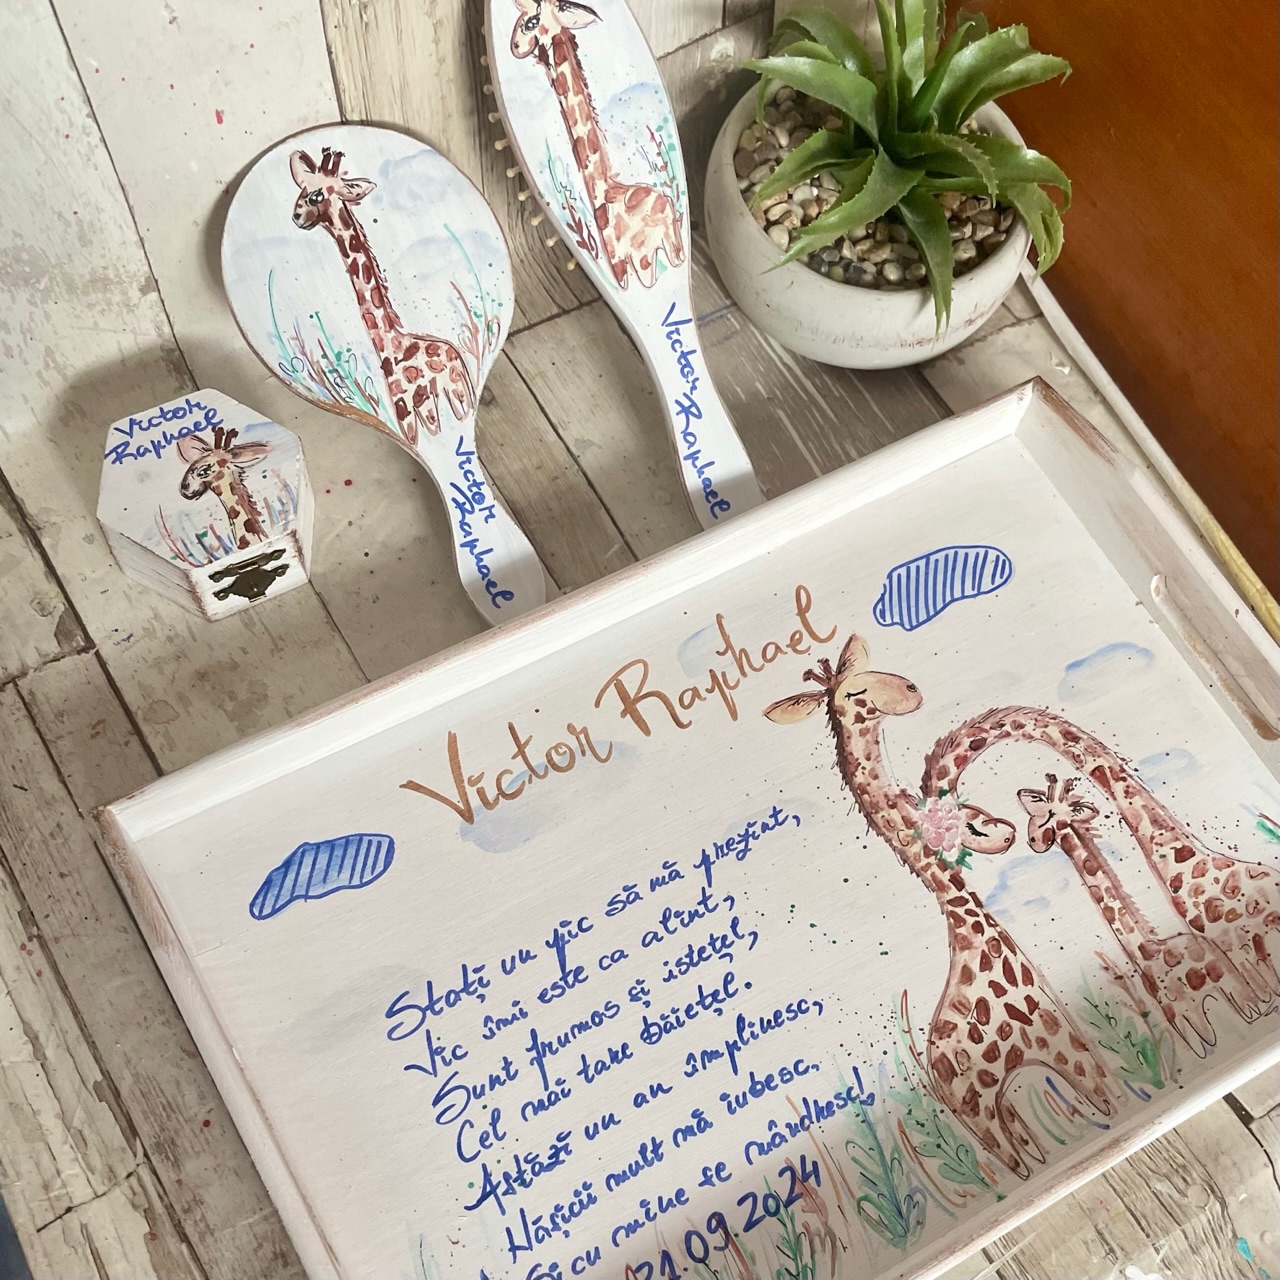 Victor
Raphael
Victor
Raphael
Victor
Raphael
Victor Raphael
Stați un pic să mă prezint,
Vic îmi este ca alint,
Sunt frumos și istețel,
Cel mai tare băiețel.
Astăzi un an împlinesc,
Nășicii mult mă iubesc,
Și cu mine se mândresc!
21.09.2024